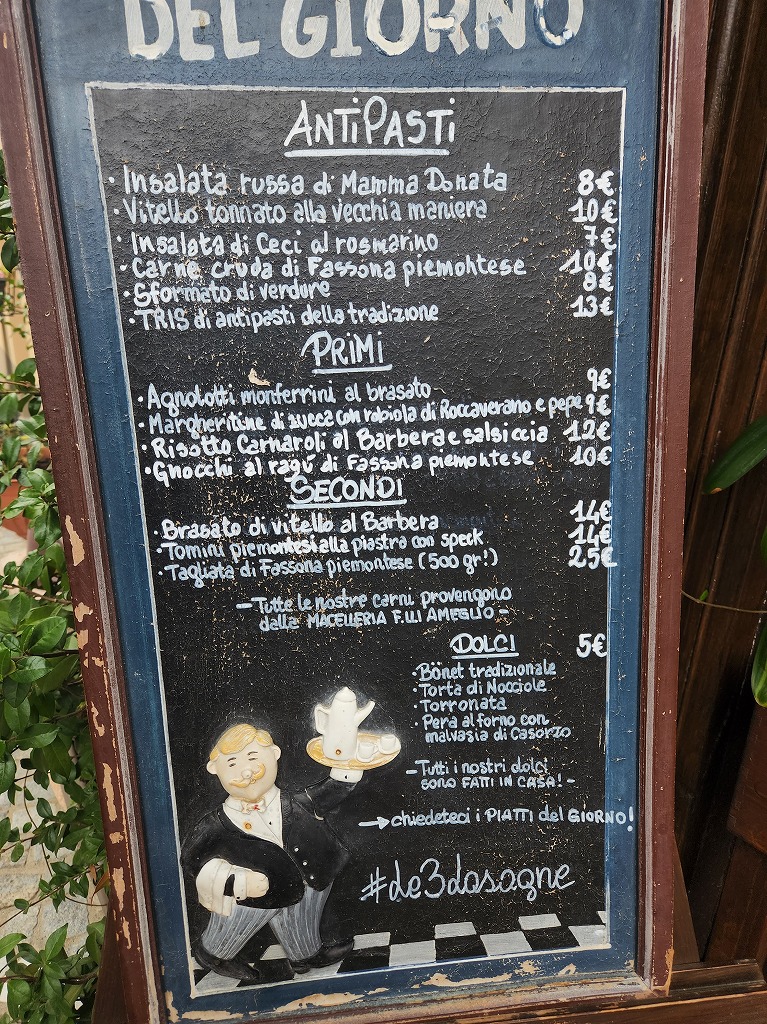 DEL GIORNO
ANTIPASTI
• Insalata russa di Mamma Donata 8€
• Vitello tonnato alla vecchia maniera 10€
• Insalata di Ceci al rosmarino 7€
• Carne cruda di Fassona piemontese 10€
• Sformato di verdure 8€
• TRIS di antipasti della tradizione 13€
PRIMI
• Agnolotti monferrini al brasato 9€
• Margheritine di zucca con robiola di Roccaverano e pepe 9€
• Risotto Carnaroli al Barbera e salsiccia 12€
• Gnocchi al ragú di Fassona piemontese 10€
SECONDI
• Brasato di vitello al Barbera 14€
• Tomini piemontesi alla piastra con speck 14€
• Tagliata di Fassona piemontese (500 gr!) 25€
- Tutte le nostre carni provengono
dalla MACELLERIA F.LLI AMEGLIO -
DOLCI 5€
• Bönet tradizionale
• Torta di Nocciole
• Torronata
• Pera al forno con
malvasia di Casorzo
- Tutti i nostri dolci
sono FATTI IN CASA! -
→ chiedeteci i PIATTI del GIORNO!
#de3dasogne